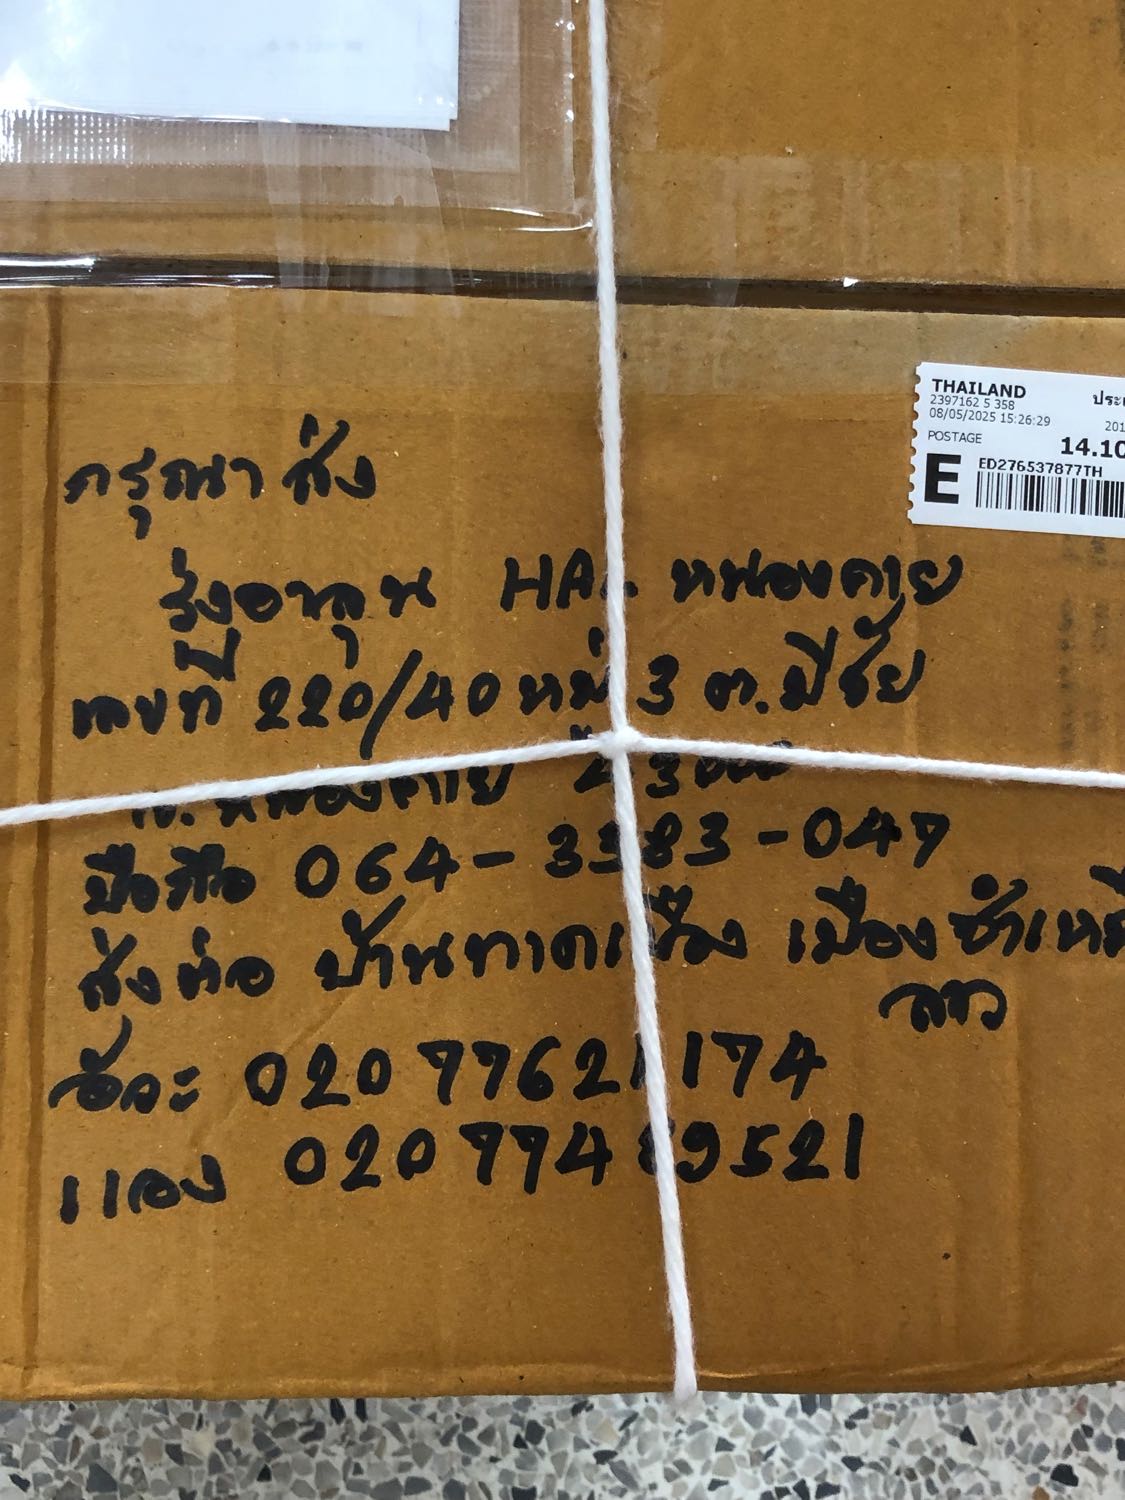 THAILAND
2397162 5 358
08/05/2025 15:26:29
POSTAGE
14.10
E ED276537877TH
กรุณาส่ง
รุ่งอาลุน หนองคาย
เลขที่ 220/40 หมู่ 3 ต.มีชัย
จ.หนองคาย
มือถือ 064-3383-047
ส่งต่อ บ้านทาดเมือง เมืองซำเหนือ
ลาว
020 77621174
020 77489521